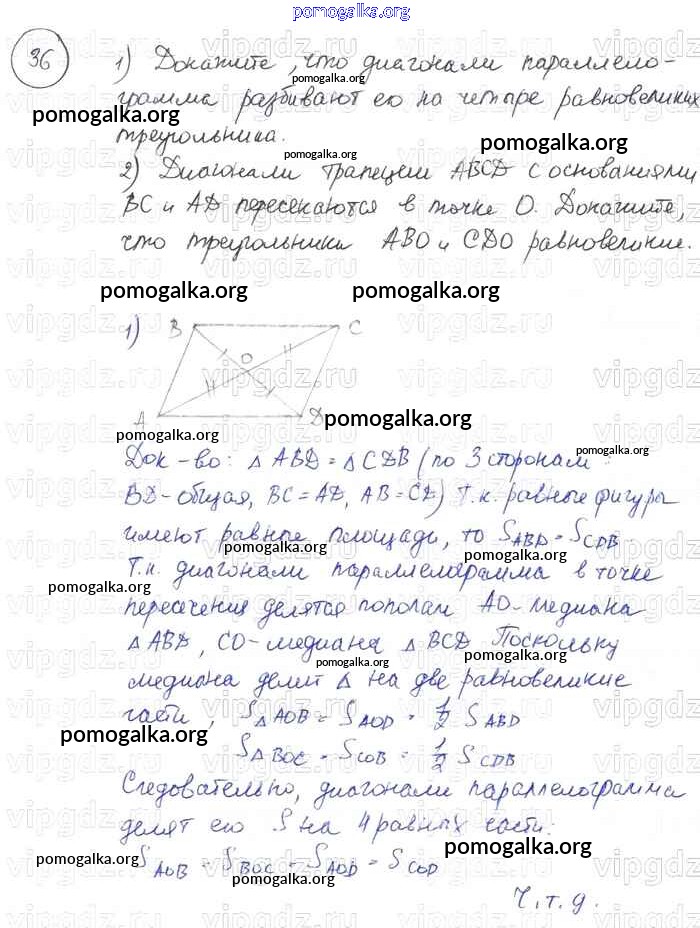 pomogalka.org
36
1) Докажите, что диагонали параллело-
pomogalka.org
грамма разбивают его на четыре равновеликих
pomogalka.org
треугольника.
pomogalka.org
pomogalka.org
2) Диагонали трапеции ABCD с основаниями
BC и AD пересекаются в точке O. Докажите,
что треугольники ABO и CDO равновеликие.
pomogalka.org pomogalka.org
1) B C
O
A D pomogalka.org
pomogalka.org
Док-во: △ ABD = △ CDB (по 3 сторонам:
pomogalka.org
BD-общая, BC = AD, AB = CD) Т.к. равные фигуры
имеют равные площади, то S ABD = S CDB.
pomogalka.org pomogalka.org
Т.к. диагонали параллелограмма в точке
pomogalka.org
пересечения делятся пополам AO-медиана
△ ABD, CO-медиана △ BCD. Поскольку
pomogalka.org pomogalka.org
медиана делит △ на две равновеликие
части, S△AOB = S AOD = 1/2 S ABD
pomogalka.org
S△BOC = S COB = 1/2 S CDB
Следовательно, диагонали параллелограмма
делят его S на 4 равных части:
pomogalka.org pomogalka.org
S AOB = S BOC = S AOD = S COD
pomogalka.org
Ч.т.д.
vipgdz.ru